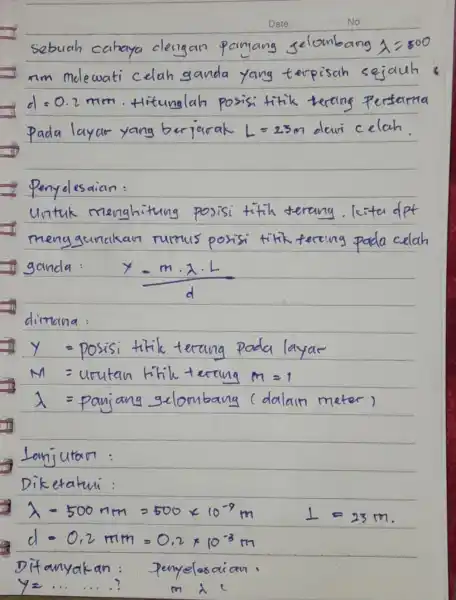 Date
No
Sebuah cahaya dengan panjang gelombang λ = 500
nm melewati celah ganda yang terpisah sejauh
d = 0.2 mm. Hitunglah posisi titik terang Pertama
Pada layar yang berjarak L = 23m dari celah.
Penyelesaian :
Untuk menghitung posisi titik terang. kita dpt
menggunakan rumus posisi titik terang pada celah
ganda : y = m . λ . L
d
dimana :
Y = posisi titik terang pada layar
M = urutan titik terang m = 1
λ = panjang gelombang (dalam meter)
Lanjutan :
Diketahui :
λ = 500 nm = 500 x 10⁻⁹ m L = 23 m.
d = 0,2 mm = 0,2 x 10⁻³ m
Ditanyakan : Penyelesaian :
y = ... ... ?
m λ